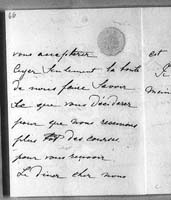 66
vous accepterez
ayez seulement la bonté
de nous faire savoir
ce que vous déciderez
pour que nous revenions
plus tôt des courses
pour vous recevoir.
Le dîner chez nous
est